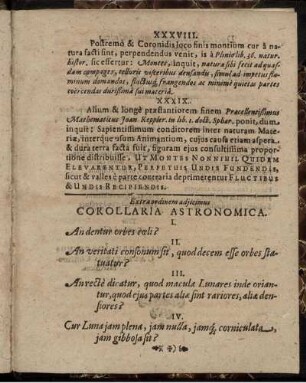 XXXVIII.
Postremò & Coronidis loco finis montium cur à na-
tura facti sint, perpendendus venit, is à Plinio lib. 36. natur.
histor. sic effertur: Montes, inquit, natura sibi fecit ad quas-
dam compages, telluris visceribus densandis, simul ad impetus flu-
minum domandos, fluctusq; frangendos ac minimè quietas partes
coërcendas durissimâ sui materiâ.
XXXIX.
Alium & longè præstantiorem finem Præcellentissimus
Mathematicus Joan. Keppler. in lib. 1. doct. Sphær. ponit, dum
inquit: Sapientissimum conditorem inter naturam Mate-
riæ, interque usum Animantium, cujus causa etiam aspera
& dura terra facta fuit, figuram ejus consultissima propor-
tione distribuisse. UT MONTES NONNIHIL QUIDEM
ELEVARENTUR, PERPETUIS UNDIS FUNDENDIS,
sicut & valles è parte contraria deprimerentur FLUCTIBUS
& UNDIS RECIPIENDIS.
Extra ordinem adjicimus
COROLLARIA ASTRONOMICA.
I.
An dentur orbes cœli?
II.
An veritati consonum sit, quod decem esse orbes sta-
tuatur?
III.
An rectè dicatur, quod maculæ Lunares inde orian-
tur, quod ejus partes aliæ sint rariores, aliæ den-
siores?
IV.
Cur Luna jam plena, jam nulla, jamq; corniculata,
jam gibbosa sit?